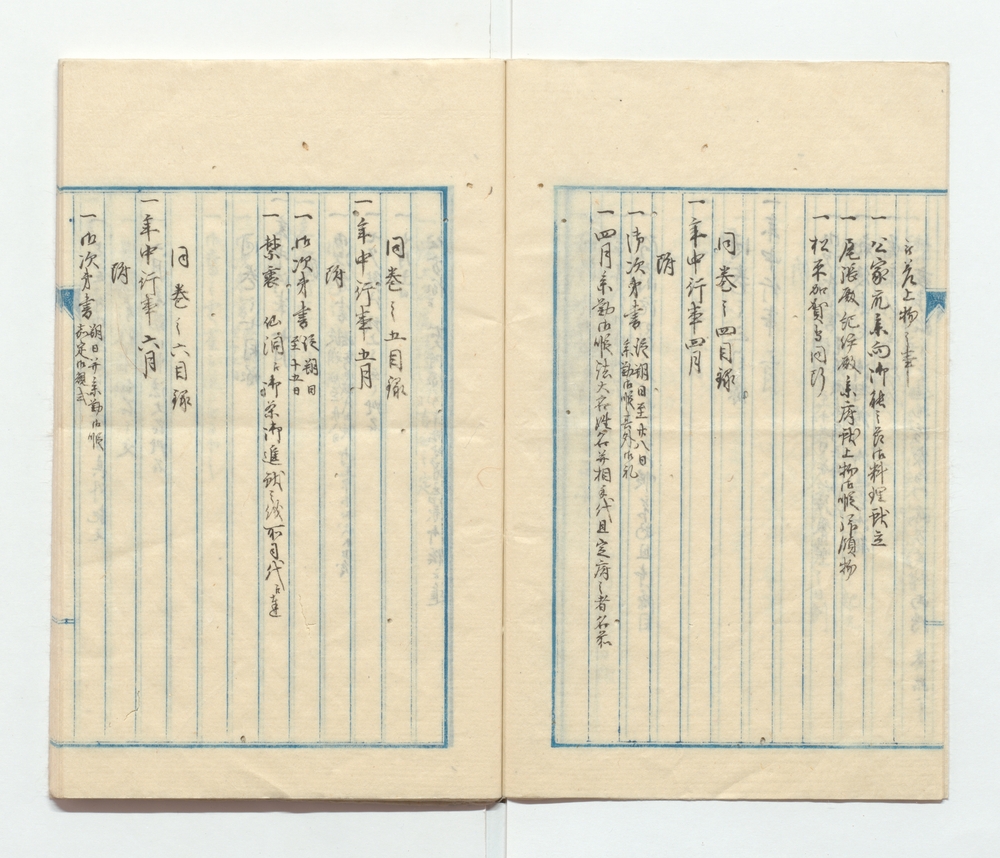 差上物之事
一公家衆参向御馳走之節御料理献立
一尾張殿紀伊殿参府献上物御帳拝領物
一松平加賀守同断
同巻之四目録
一年中行事四月
附
一御次第書 従朔日至廿八日 参勤御帳其外御礼
一四月参勤御帳法大名姓名并相　代且定府之者名前
同巻之五目録
一年中行事五月
附
一御次第書 従朔日至十五日
一禁裏 仙洞江御茶御進献之儀所司代江達
同巻之六目録
一年中行事六月
附
一御次第書 朔日并参勤御帳 嘉定御規式